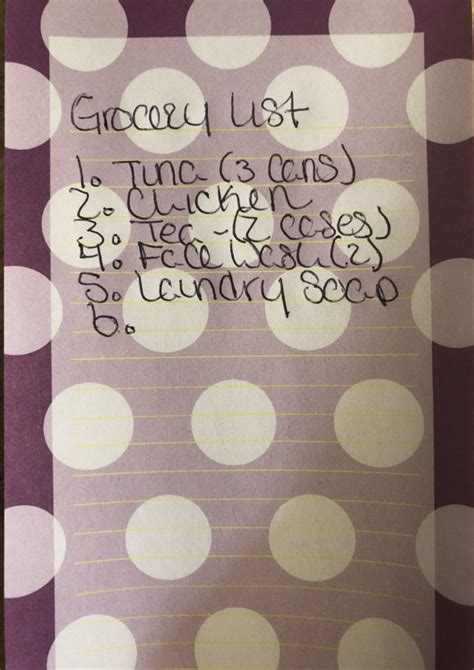 Grocery List
1. Tuna (3 cans)
2. Chicken
3. Tea - (2 cases)
4. Face Wash (2)
5. Laundry Soap
6.